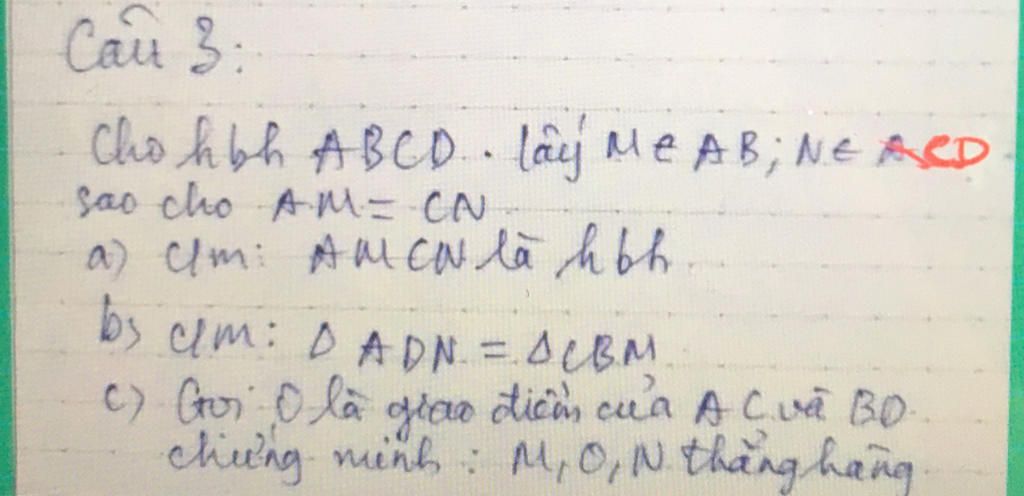 Câu 3:
Cho hbh ABCD. lấy M∈ AB; N∈ CD
sao cho AM = CN
a) c/m: AMCN là hbh
b) c/m: Δ ADN = ΔCBM
c) Gọi O là giao điểm của AC và BD.
chứng minh: M, O, N thẳng hàng